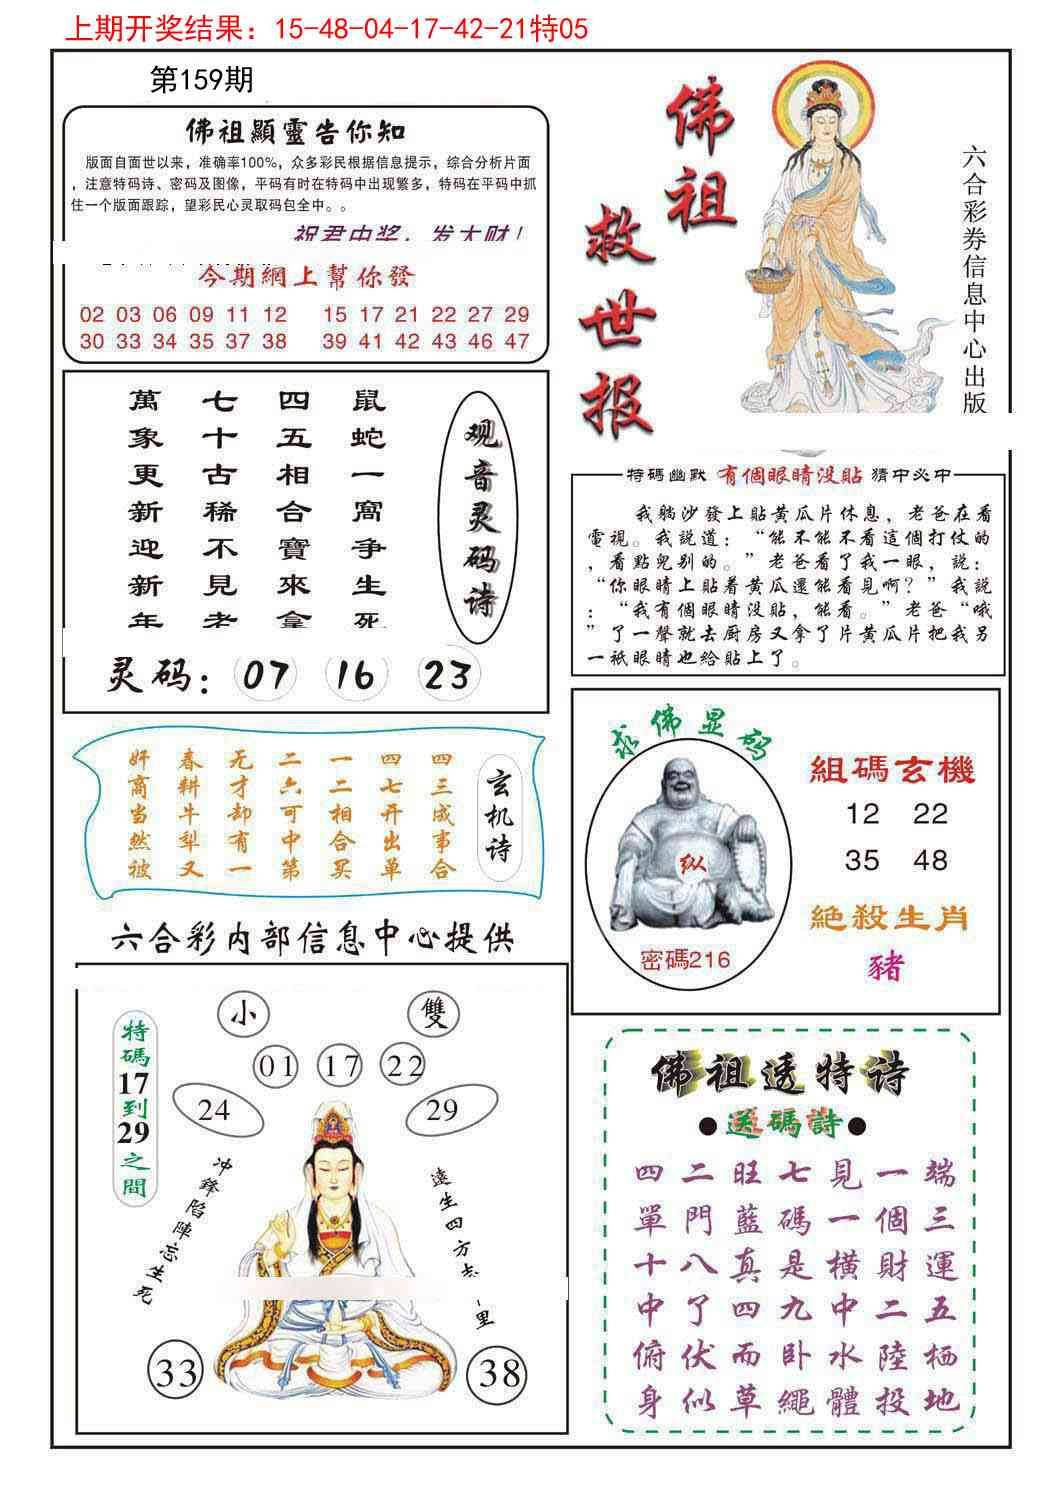 上期开奖结果：15-48-04-17-42-21特05
第159期
佛祖顯靈告你知
版面自面世以来，准确率100%，众多彩民根据信息提示，综合分析片面
，注意特码诗、密码及图像，平码有时在特码中出现繁多，特码在平码中抓
住一个版面跟踪，望彩民心灵取码包全中。。
祝君中奖，发大财！
今期網上幫你發
02 03 06 09 11 12 15 17 21 22 27 29
30 33 34 35 37 38 39 41 42 43 46 47
佛祖
救世报
六合彩券信息中心出版
萬七四鼠
象十五蛇
更古相一
新稀合窩
迎不寶争
新見來生
年老拿死
观音灵码诗
灵码：07 16 23
特碼幽默 有個眼睛没貼 猜中必中
我躺沙發上貼黄瓜片休息，老爸在看
電視。我説道：“能不能不看這個打仗的
，看點兒别的。”老爸看了我一眼，説：
“你眼睛上貼着黄瓜還能看見啊？”我説
：“我有個眼睛没貼，能看。”老爸“哦
”了一聲就去厨房又拿了片黄瓜片把我另
一祇眼睛也給貼上了。
奸春无二一四四
商耕才六二七三
当牛却可相开成
然犁有中合出事
被又一第买单合
玄机诗
六合彩内部信息中心提供
求佛显码
纵
密碼216
組碼玄機
12 22
35 48
絶殺生肖
豬
特碼17到29之間
小 雙
01 17 22
24 29
冲鋒陷陣忘生死
遠生四方志
里
33 38
佛祖透特诗
●送碼詩●
四二旺七見一端
單門藍碼一個三
十八真是横財運
中了四九中二五
俯伏而卧水陸栖
身似草繩體投地